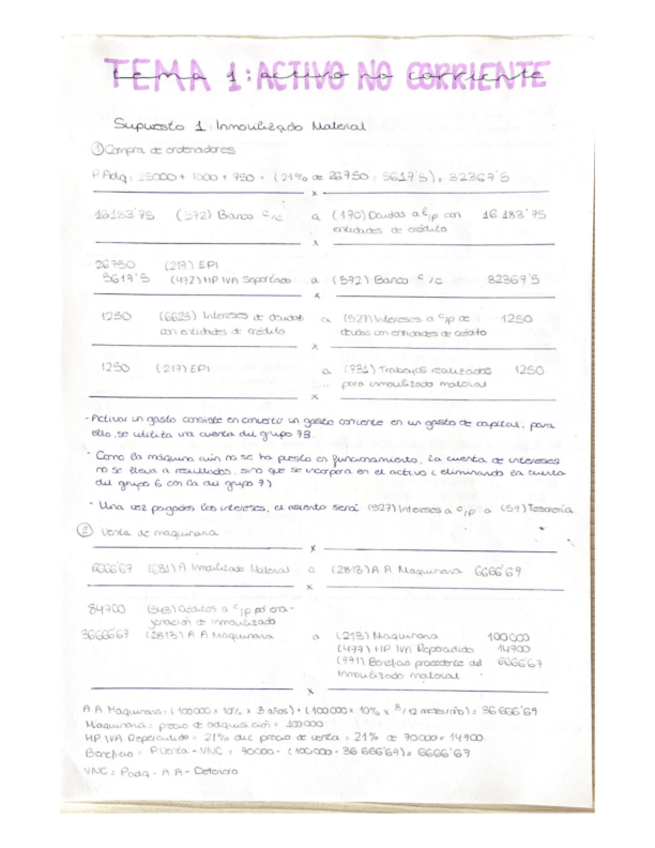 TEMA 1: ACTIVO NO CORRIENTE
tema 1: activo no corriente
Supuesto 1: Inmovilizado Material
① Compra de ordenadores
P. Adq: 25000 + 1000 + 750 + (21% de 26750 = 5617'5) = 32367'5
x
16183'75 (572) Banco c/c a (170) Deudas a l/p con 16.183'75
entidades de crédito
x
26750 (217) EPI
5617'5 (472) HP IVA Soportado a (572) Banco c/c 32367'5
x
1250 (6623) Intereses de deudas a (527) Intereses a c/p de 1250
con entidades de crédito deudas con entidades de crédito
x
1250 (217) EPI a (731) Trabajos realizados 1250
para inmovilizado material
x
- Activar un gasto consiste en convertir un gasto corriente en un gasto de capital, para
ello, se utiliza una cuenta del grupo 73.
- Como la máquina aún no se ha puesto en funcionamiento, la cuenta de intereses
no se lleva a resultados, sino que se incorpora en el activo (eliminando la cuenta
del grupo 6 con la del grupo 7)
- Una vez pagados los intereses, el asiento será: (527) Intereses a c/p a (57) Tesorería
② Venta de maquinaria
x
6666'67 (681) A. Inmovilizado Material a (2813) A.A Maquinaria 6666'67
x
84700 (543) Créditos a c/p por ena-
jenación de inmovilizado
36666'67 (2813) A.A Maquinaria a (213) Maquinaria 100000
(477) HP IVA Repercutido 14700
(771) Beneficio procedente del 6666'67
inmovilizado material
x
A.A Maquinaria: (100000 x 10% x 3 años) + (100000 x 10% x 8/12 meses/año) = 36666'67
Maquinaria: precio de adquisición = 100000
HP IVA Repercutido = 21% del precio de venta = 21% de 70000 = 14700
Beneficio = P. Venta - VNC = 70000 - (100000 - 36666'67) = 6666'67
VNC = P.adq - A.A - Deterioro